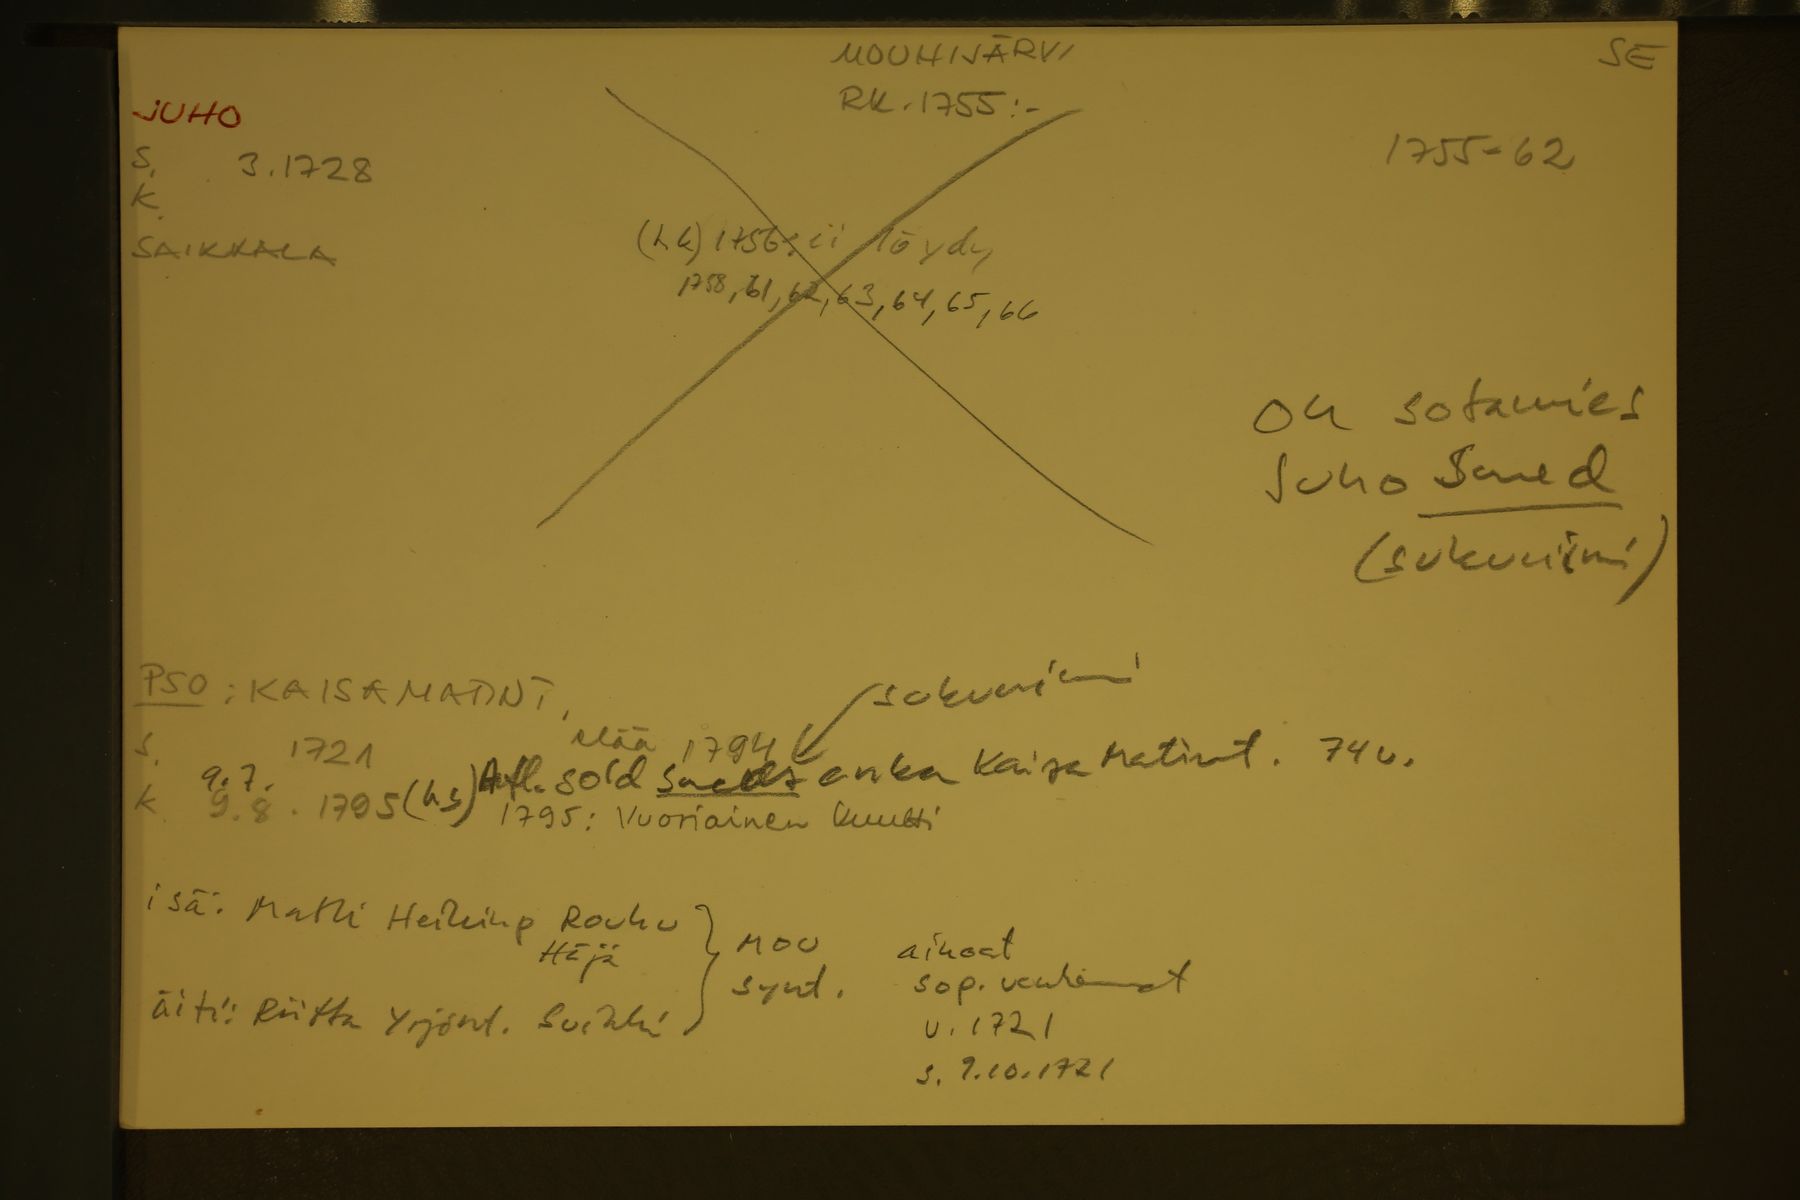 MOUHIJÄRVI
SE
RK. 1755:-
JUHO
1755-62
S. 3.1728
K.
SAIKKALA
(hk) 1756: ei löydy
1758, 61, 62, 63, 64, 65, 66
On sotamies
Juho Smed
(sukunimi)
PSO: KAISA MATINT,
sukunimi
S. 1721
elää 1794
9.7.
Afl. sold Smeds enka Kaisa Matint. 74 v.
K. 9.8.1795 (hs)
1795: Vuoriainen Kuutti
isä: Matti Heikinp Rouhu
Häjä
MOU
synt.
äiti: Riitta Yrjönt. Suikki
ainoat
sop. vanhemmat
v. 1721
s. 9.10.1721